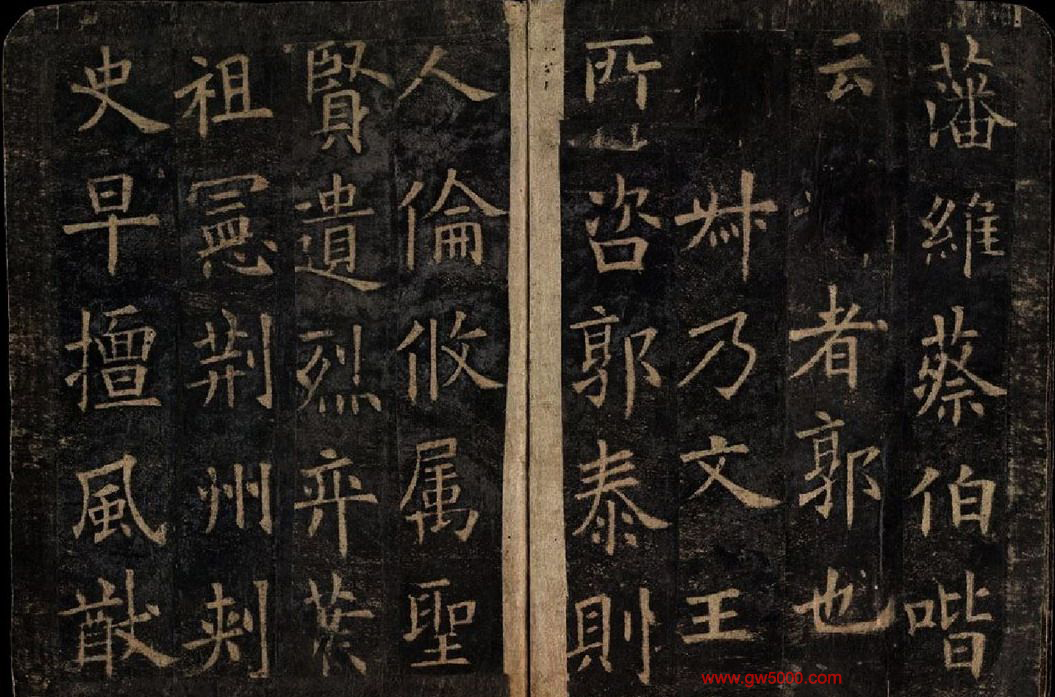 藩維蔡伯喈
云者郭也
叔乃文王
所咨郭泰則
人倫攸属聖
賢遺烈弈葉
祖憲荊州刺
史早擅風猷
www.gw5000.com